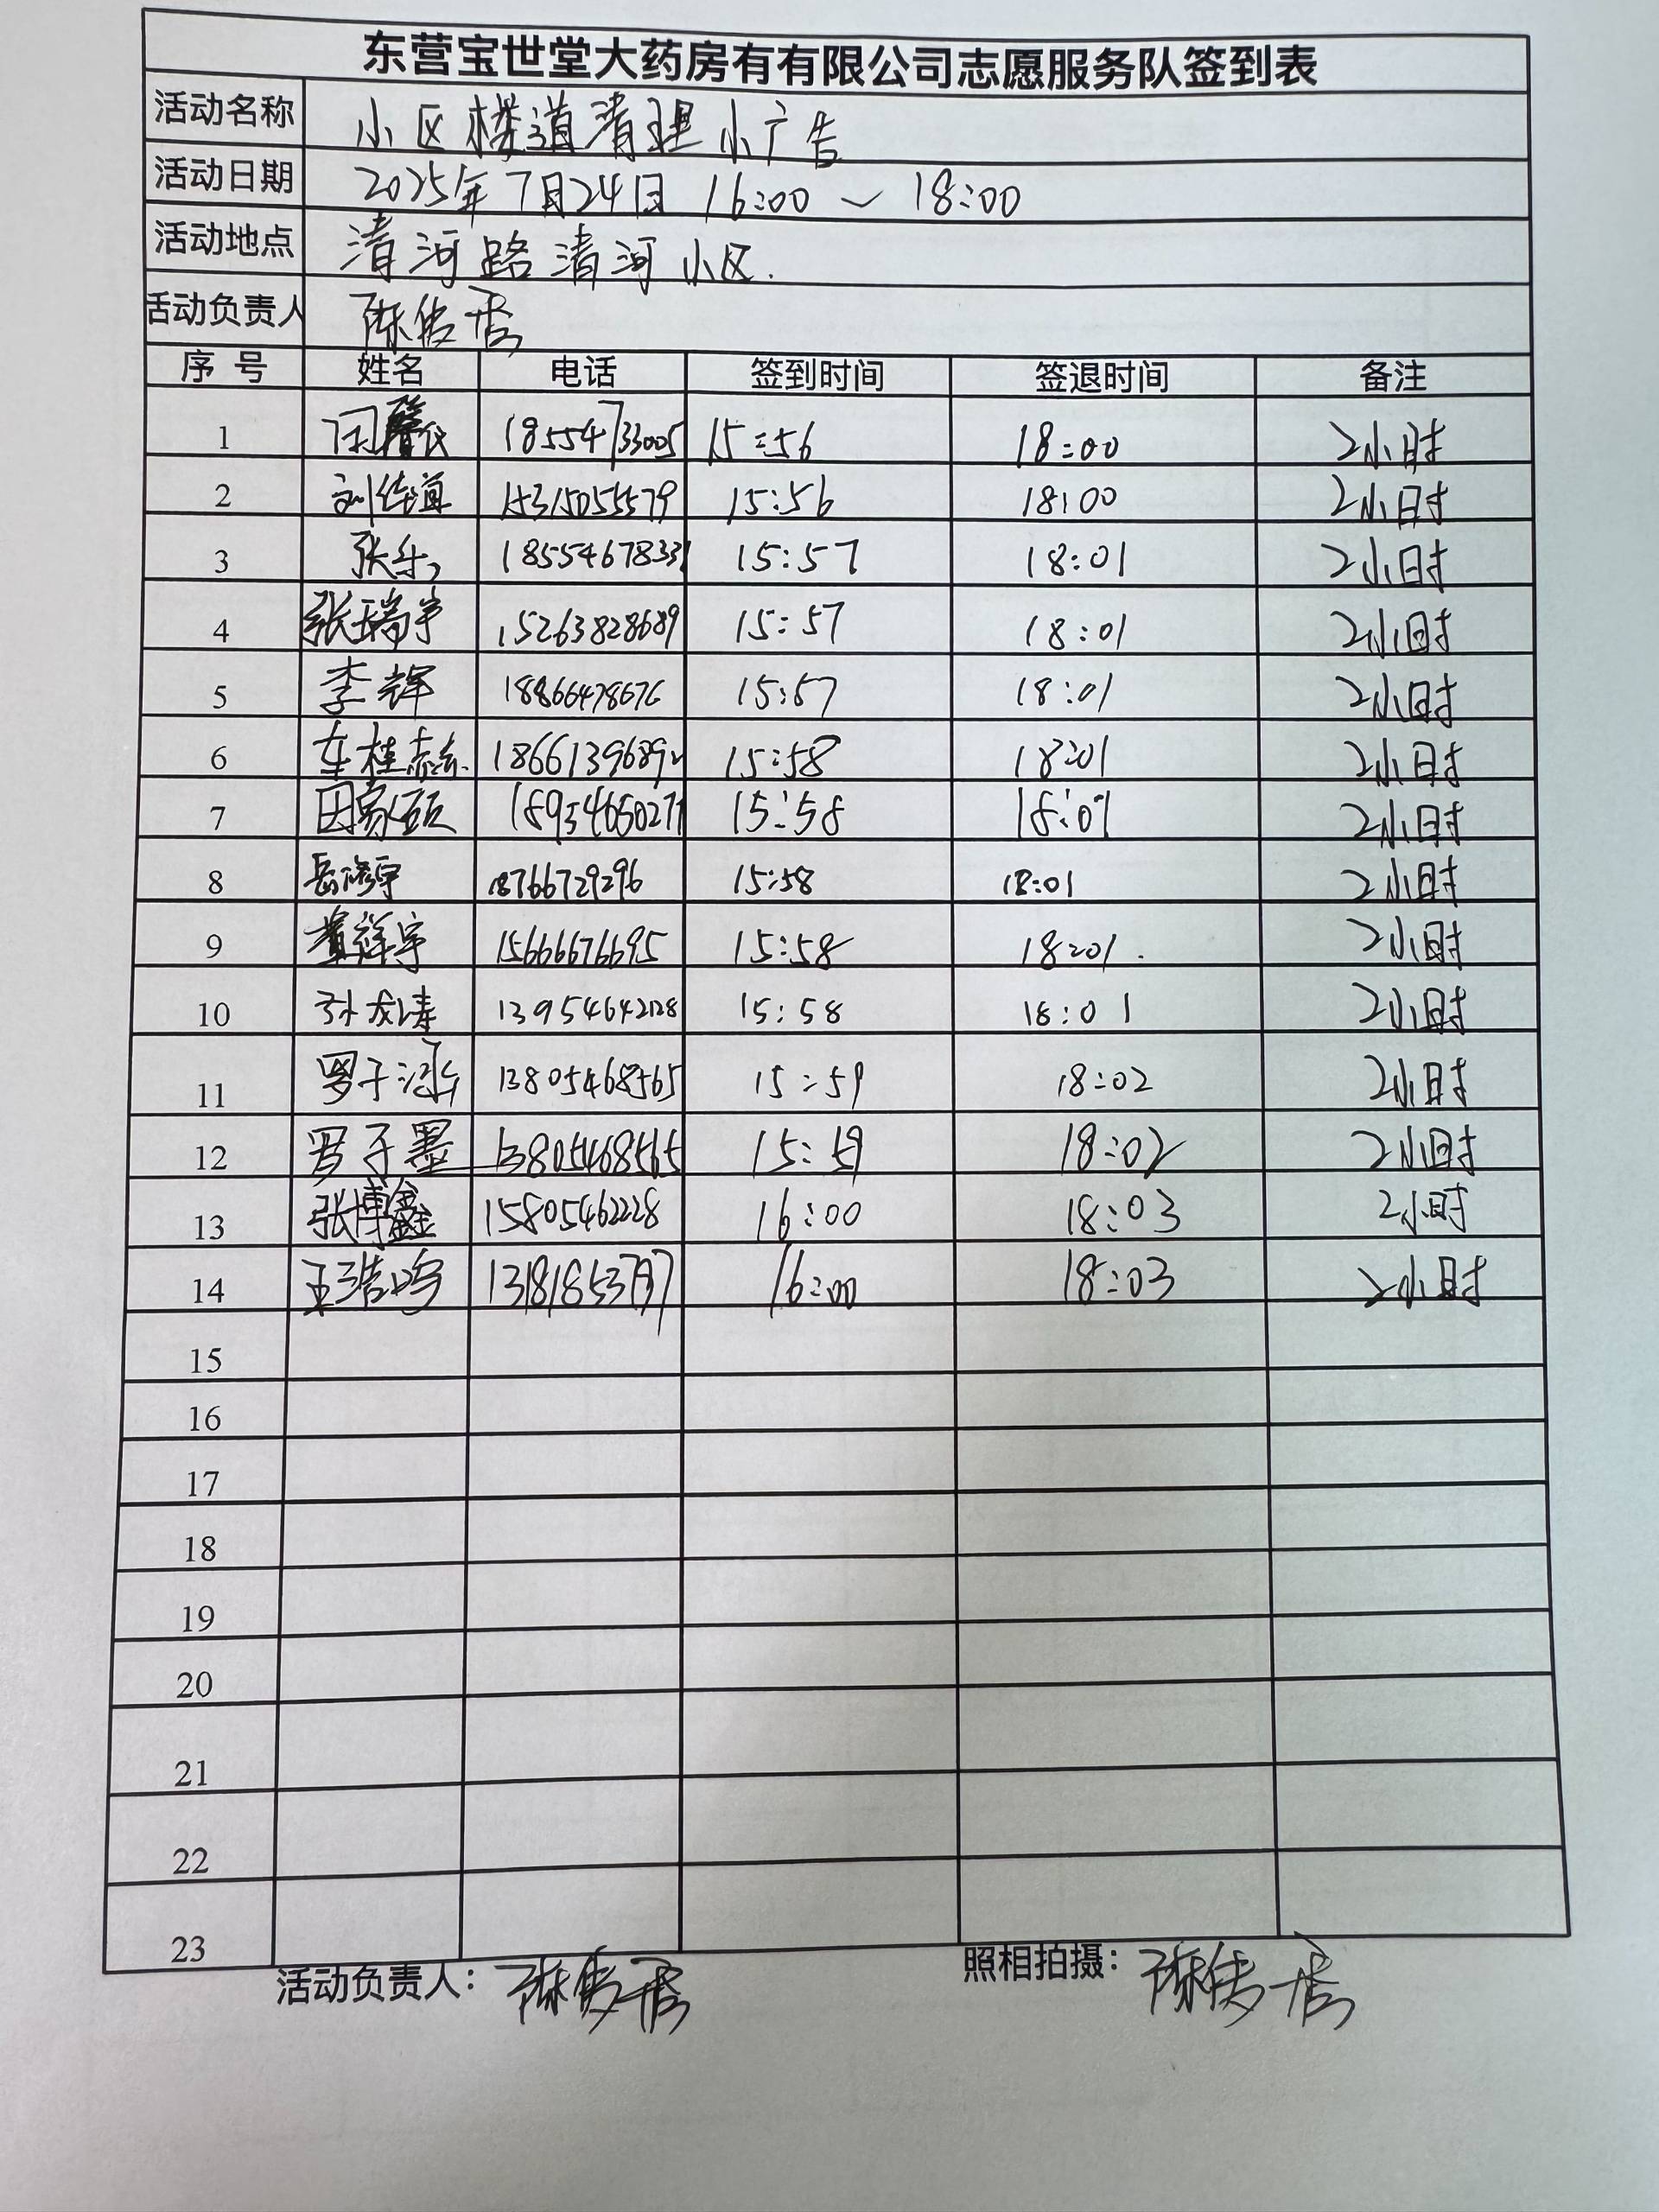 东营宝世堂大药房有有限公司志愿服务队签到表
活动名称 小区楼道清理小广告
活动日期 2025年7月24日 16:00～18:00
活动地点 清河路清河小区.
活动负责人 陈传居
序 号 姓名 电话 签到时间 签退时间 备注
1 18554733005 15:56 18:00 2小时
2 刘传道 15315055579 15:56 18:00 2小时
3 张乐 18554678331 15:57 18:01 2小时
4 张瑞宇 15263828689 15:57 18:01 2小时
5 李辉 18866478676 15:57 18:01 2小时
6 18661396892 15:58 18:01 2小时
7 田家硕 18954650271 15:58 18:01 2小时
8 岳修宇 18766729296 15:58 18:01 2小时
9 董祥宇 15666676695 15:58 18:01 2小时
10 孙龙涛 13954642128 15:58 18:01 2小时
11 罗子涵 13805468565 15:59 18:02 2小时
12 罗子墨 13805468565 15:59 18:02 2小时
13 张博鑫 15805462228 16:00 18:03 2小时
14 王浩鸣 16:00 18:03 2小时
15
16
17
18
19
20
21
22
23
活动负责人：陈传居 照相拍摄：陈传居